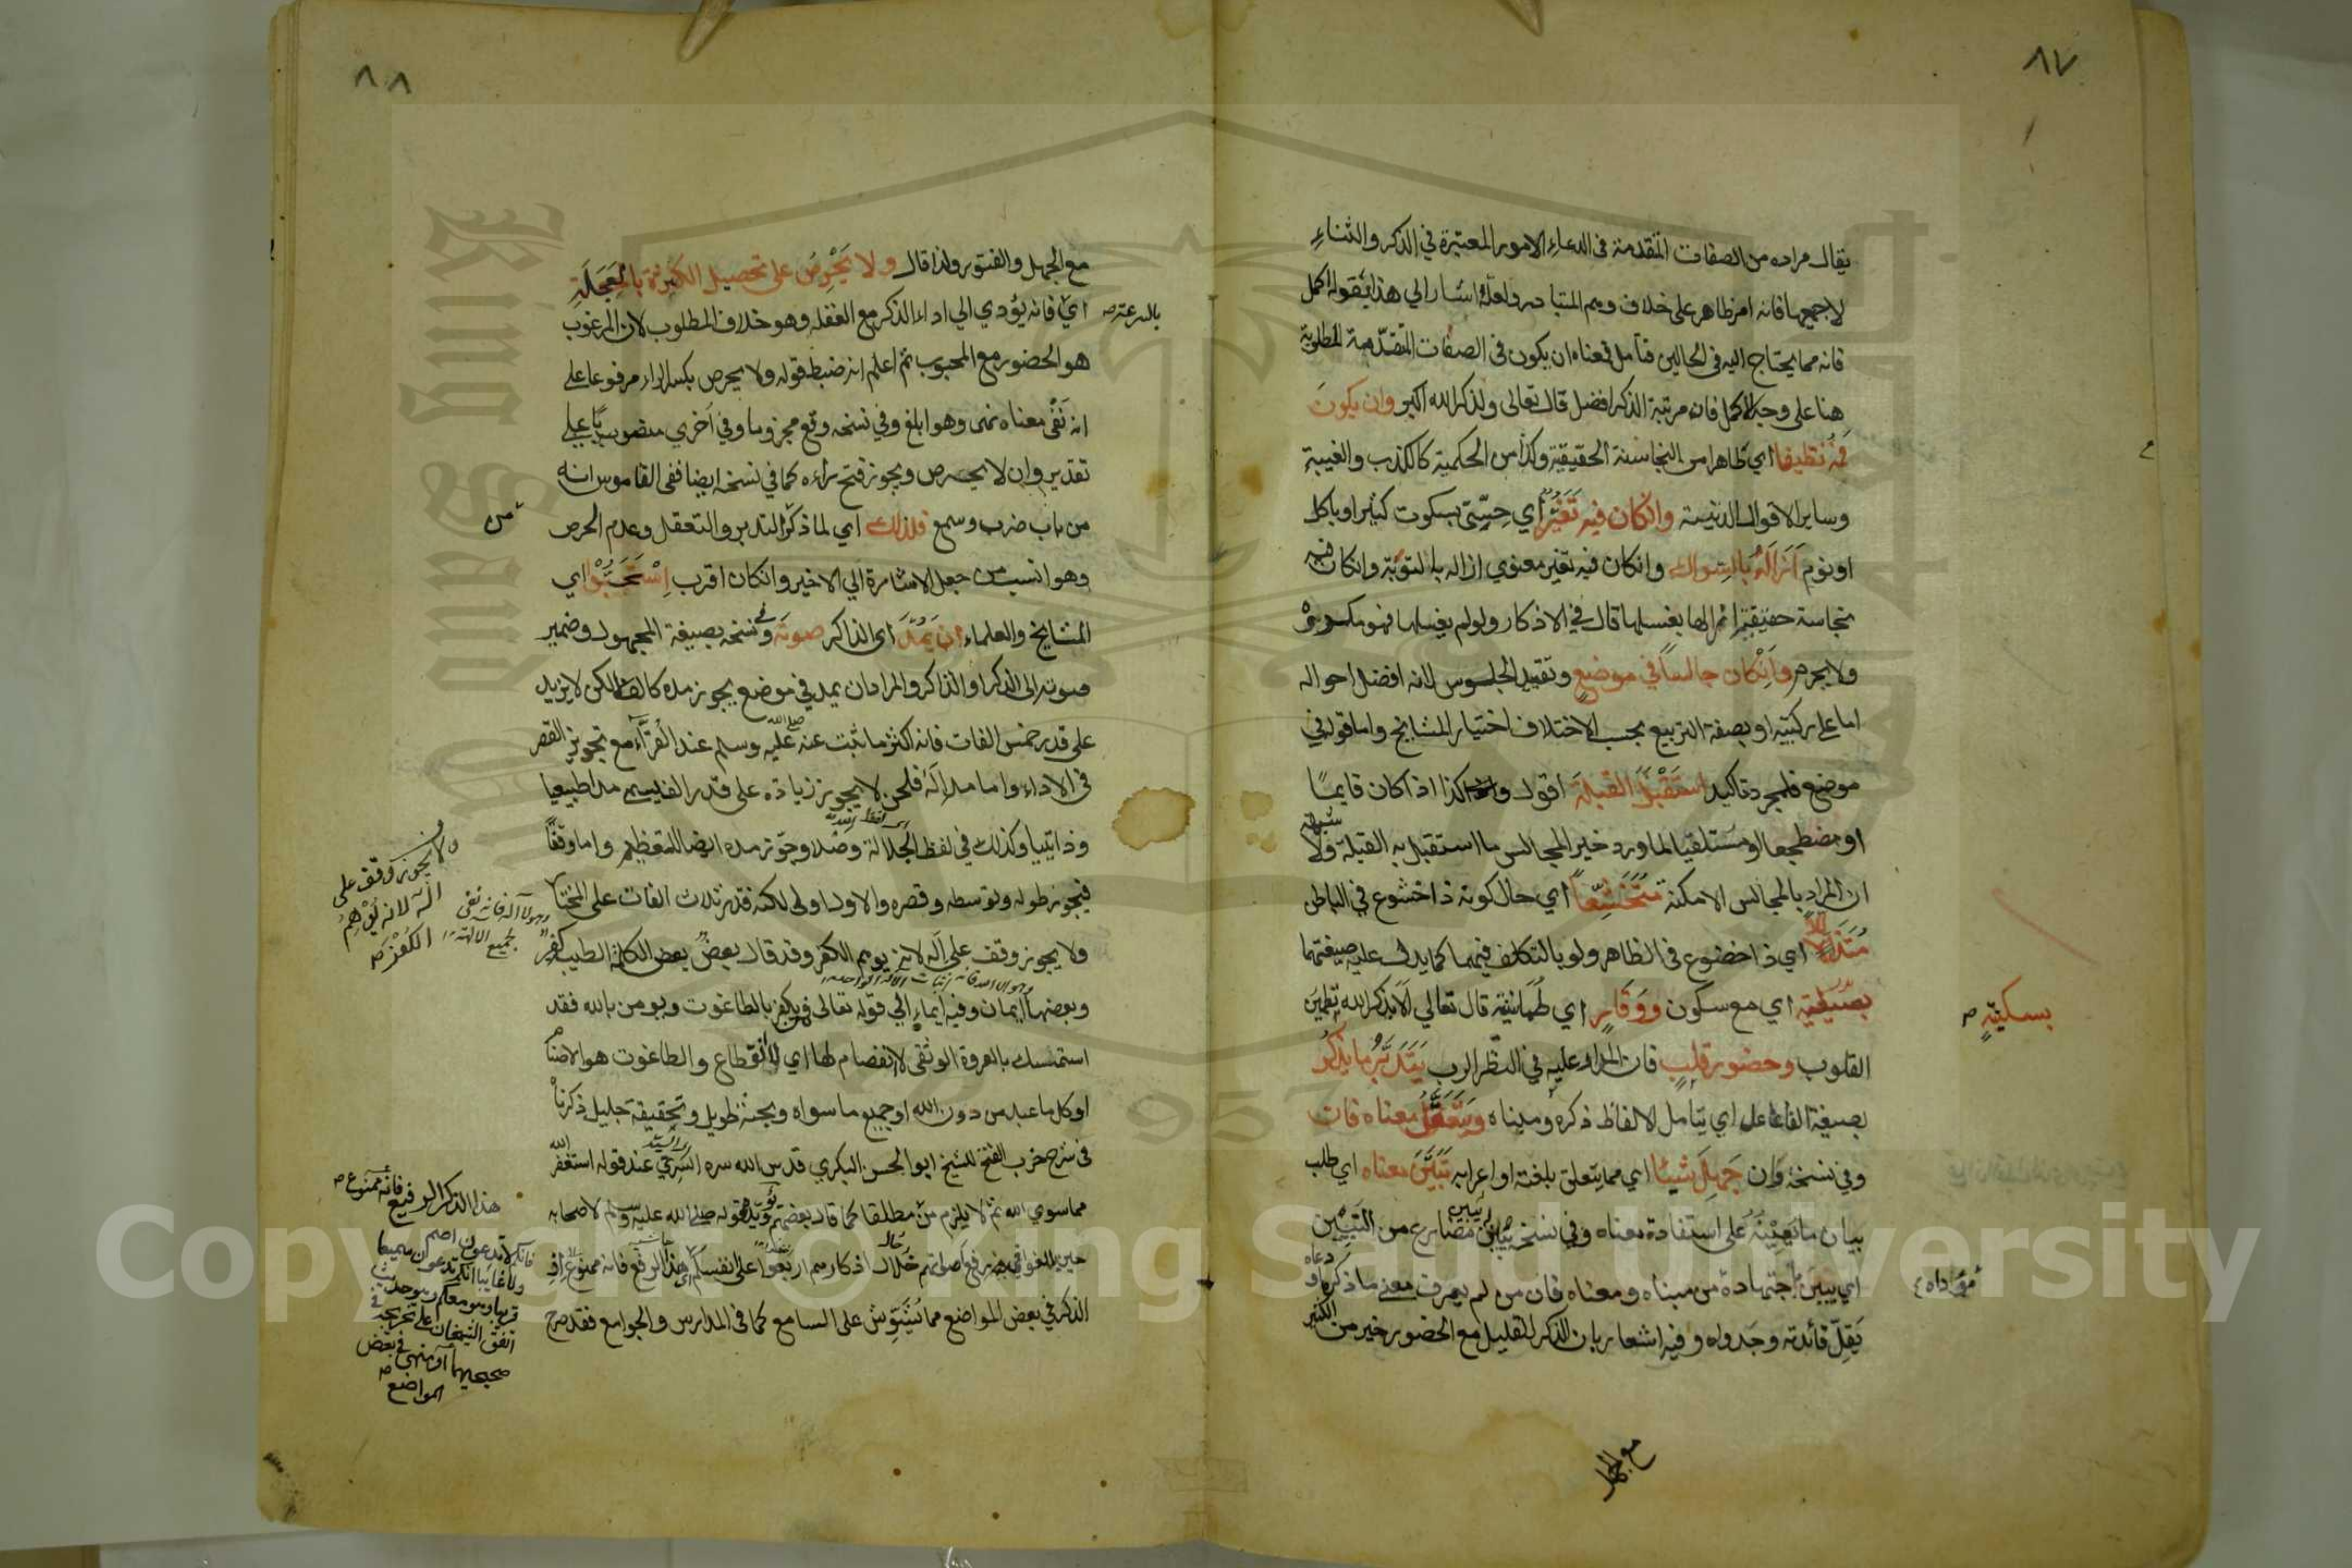 ٨٧
يقال مراده من الصفات المتقدمة في الدعاء الامور المعتبرة في الذكر والثناء
لا جميعها فانه امر ظاهر على خلاف وهم المتبادر ولعله اشار الى هذا بقوله اكمل
فانه مما يحتاج اليه في الحالين فتأمل فمعناه ان يكون في الصفات المتقدمة المطلوبة
هنا على وجه الاكمل فان مرتبة الذكر افضل قال تعالى ولذكر الله اكبر وان يكون
فمه نظيفا اي طاهرا من النجاسة الحقيقية وكذا من الحكمية كالكذب والغيبة
وساير الاقوال الدنيئة وانكان فيه تغير اي حسي بسكوت كثير او باكل
او نوم ازاله بالسواك وانكان فيه تغير معنوي ازاله بالتوبة وانكان فيه
نجاسة حقيقية ازالها بغسلها قال في الاذكار ولو لم يغسلها فهو مكروه
ولا يحرم وانكان جالسا في موضع وتقييد الجلوس لانه افضل احواله
اما على ركبتيه او بصفة التربيع بحسب الاختلاف اختيار المشايخ واما قوله في
موضع فلمجرد تاكيد استقبل القبلة اقول وكذا اذا كان قايما
او مضطجعا او مستلقيا لما ورد خير المجالس ما استقبل به القبلة ولا شبهة
ان المراد بالمجالس الامكنة متخشعا اي حال كونه ذا خشوع في الباطن
متذللا اي ذا خضوع في الظاهر ولو بالتكلف فيهما كما يدل عليه صيغتهما
بسكينة اي مع سكون ووقار اي طمانينة قال تعالى الا بذكر الله تطمئن
بسكينةٍ صح
القلوب وحضور قلب فان المدار عليه في النظر الرب يتدبر ما يذكر
بصيغة الفاعل اي يتامل لالفاظ ذكره ومبناه ويتعقل معناه فان
وفي نسخة وان جهل شيئا اي مما يتعلق بلغته او اعرابه تبين معناه اي طلب
بيان ما يعينه على استفادة معناه وفي نسخة يبين مضارع من التبيين
اي يبين اجتهادة من مبناه ومعناه فان من لم يعرف معنى ما ذكره او دعاه
مؤداه
يقل فائدته وجدواه وفيه اشعار بان الذكر القليل مع الحضور خير من الكثير
مع الجهل
٨٨
مع الجهل والفتور ولذا قال ولا يحرص على تحصيل الكثرة بالعجلة
بالسرعة صح
اي فانه يؤدي الى اداء الذكر مع الغفلة وهو خلاف المطلوب لان المرغوب
هو الحضور مع المحبوب ثم اعلم انه ضبط قوله ولا يحرص بكسر الراء مرفوعا على
انه نفي معناه نهى وهو ابلغ وفي نسخه وقع مجزوما وفي اخري منصوبا على
تقدير وان لا يحرص ويجوز فتح رآءه كما في نسخه ايضا ففي القاموس انه
من باب ضرب وسمع فلذلك اي لما ذكر التدبر والتعقل وعدم الحرص
من
وهو انسب من جعل الاشارة الى الاخير وانكان اقرب استحبوا اي
المشايخ والعلماء ان يمد اي الذاكر صوته وفي نسخه بصيغة المجهول وضمير
صوته الى الذكر او الذاكر والمراد ان يمد في موضع يجوز مده كالف لا لكن لا يزيد
على قدر خمس الفات فانه اكثر ما ثبت عنه صلى الله عليه وسلم عند القرآء مع تجويز القصر
في الاداء واما مد اله فلحن لا يجوز زيادة على قدر الف لانه يسمى مدا طبيعيا
وذاتيا وكذلك في لفظ الجلالة وصلا وجوز مده ايضا للتعظيم واما وقفا
فيجوز طوله وتوسطه وقصره والاول اولى لكنه قدر ثلاث الفات على المختار
ولا يجوز وقف على اله لانه يوهم الكفر وقد قال بعض بعض الكلمة الطيب كفر
وبعضها ايمان وفيه ايماء الى قوله تعالى فمن يكفر بالطاغوت ويومن بالله فقد
استمسك بالعروة الوثقى لا انفصام لها اي لا انقطاع والطاغوت هو الاصنام
او كل ما عبد من دون الله او جميع ما سواه وبحثه طويل وتحقيقه جليل ذكرناه
في شرح حزب الفتح للشيخ ابو الحسن البكري قدس الله سره السري عند قوله استغفر الله
مما سوي الله ثم لا يلزم من مطلقا كما قال بعضهم ويؤيده قوله صلى الله عليه وسلم لاصحابه
حين بالغوا في رفع اصواتهم خلال اذكارهم اربعوا على انفسكم هذا الرفع فانه ممنوع
الذكر في بعض المواضع مما يشوش على السامع كما في المدارس والجوامع فقد صرح
ولا يجوز وقف على
اله لانه يوهم
الكفر صح
وهو لا اله فانه نفي
لجميع الالهة
وهو الا الله فانه اثبات الاله الواحد
هذا الذكر الرفيع فانه ممنوع صح
فانكم لا تدعون اصم
ولا غائبا انكم تدعون سميعا
قريبا وهو معكم وهو حديث
اتفق الشيخان على تخريجه في
صحيحيهما او منهي في بعض
المواضع صح
Copyright © King Saud University
King Saud University
1957